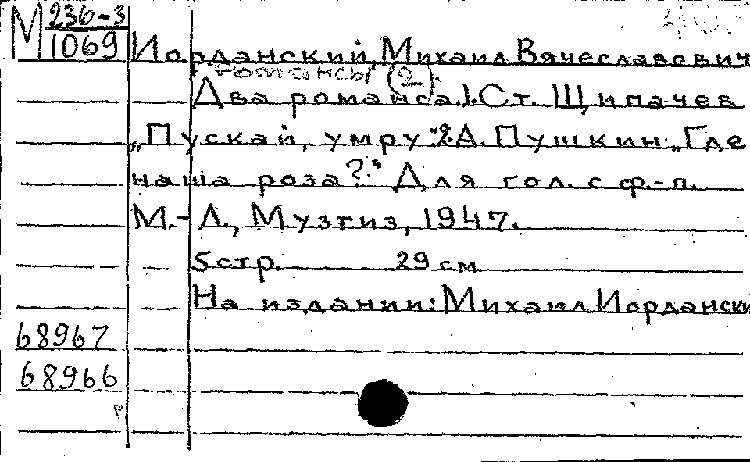 М 236-3
1069
Иорданский, Михаил Вячеславович
Романсы (2).
Два романса. 1. Ст. Щипачев
"Пускай, умру". 2. А. Пушкин: "Где
наша роза?." Для гол. с ф.-п.
М.-Л., Музгиз, 1947.
5 стр. 29 см
На издании: Михаил Иорданский
68967
68966